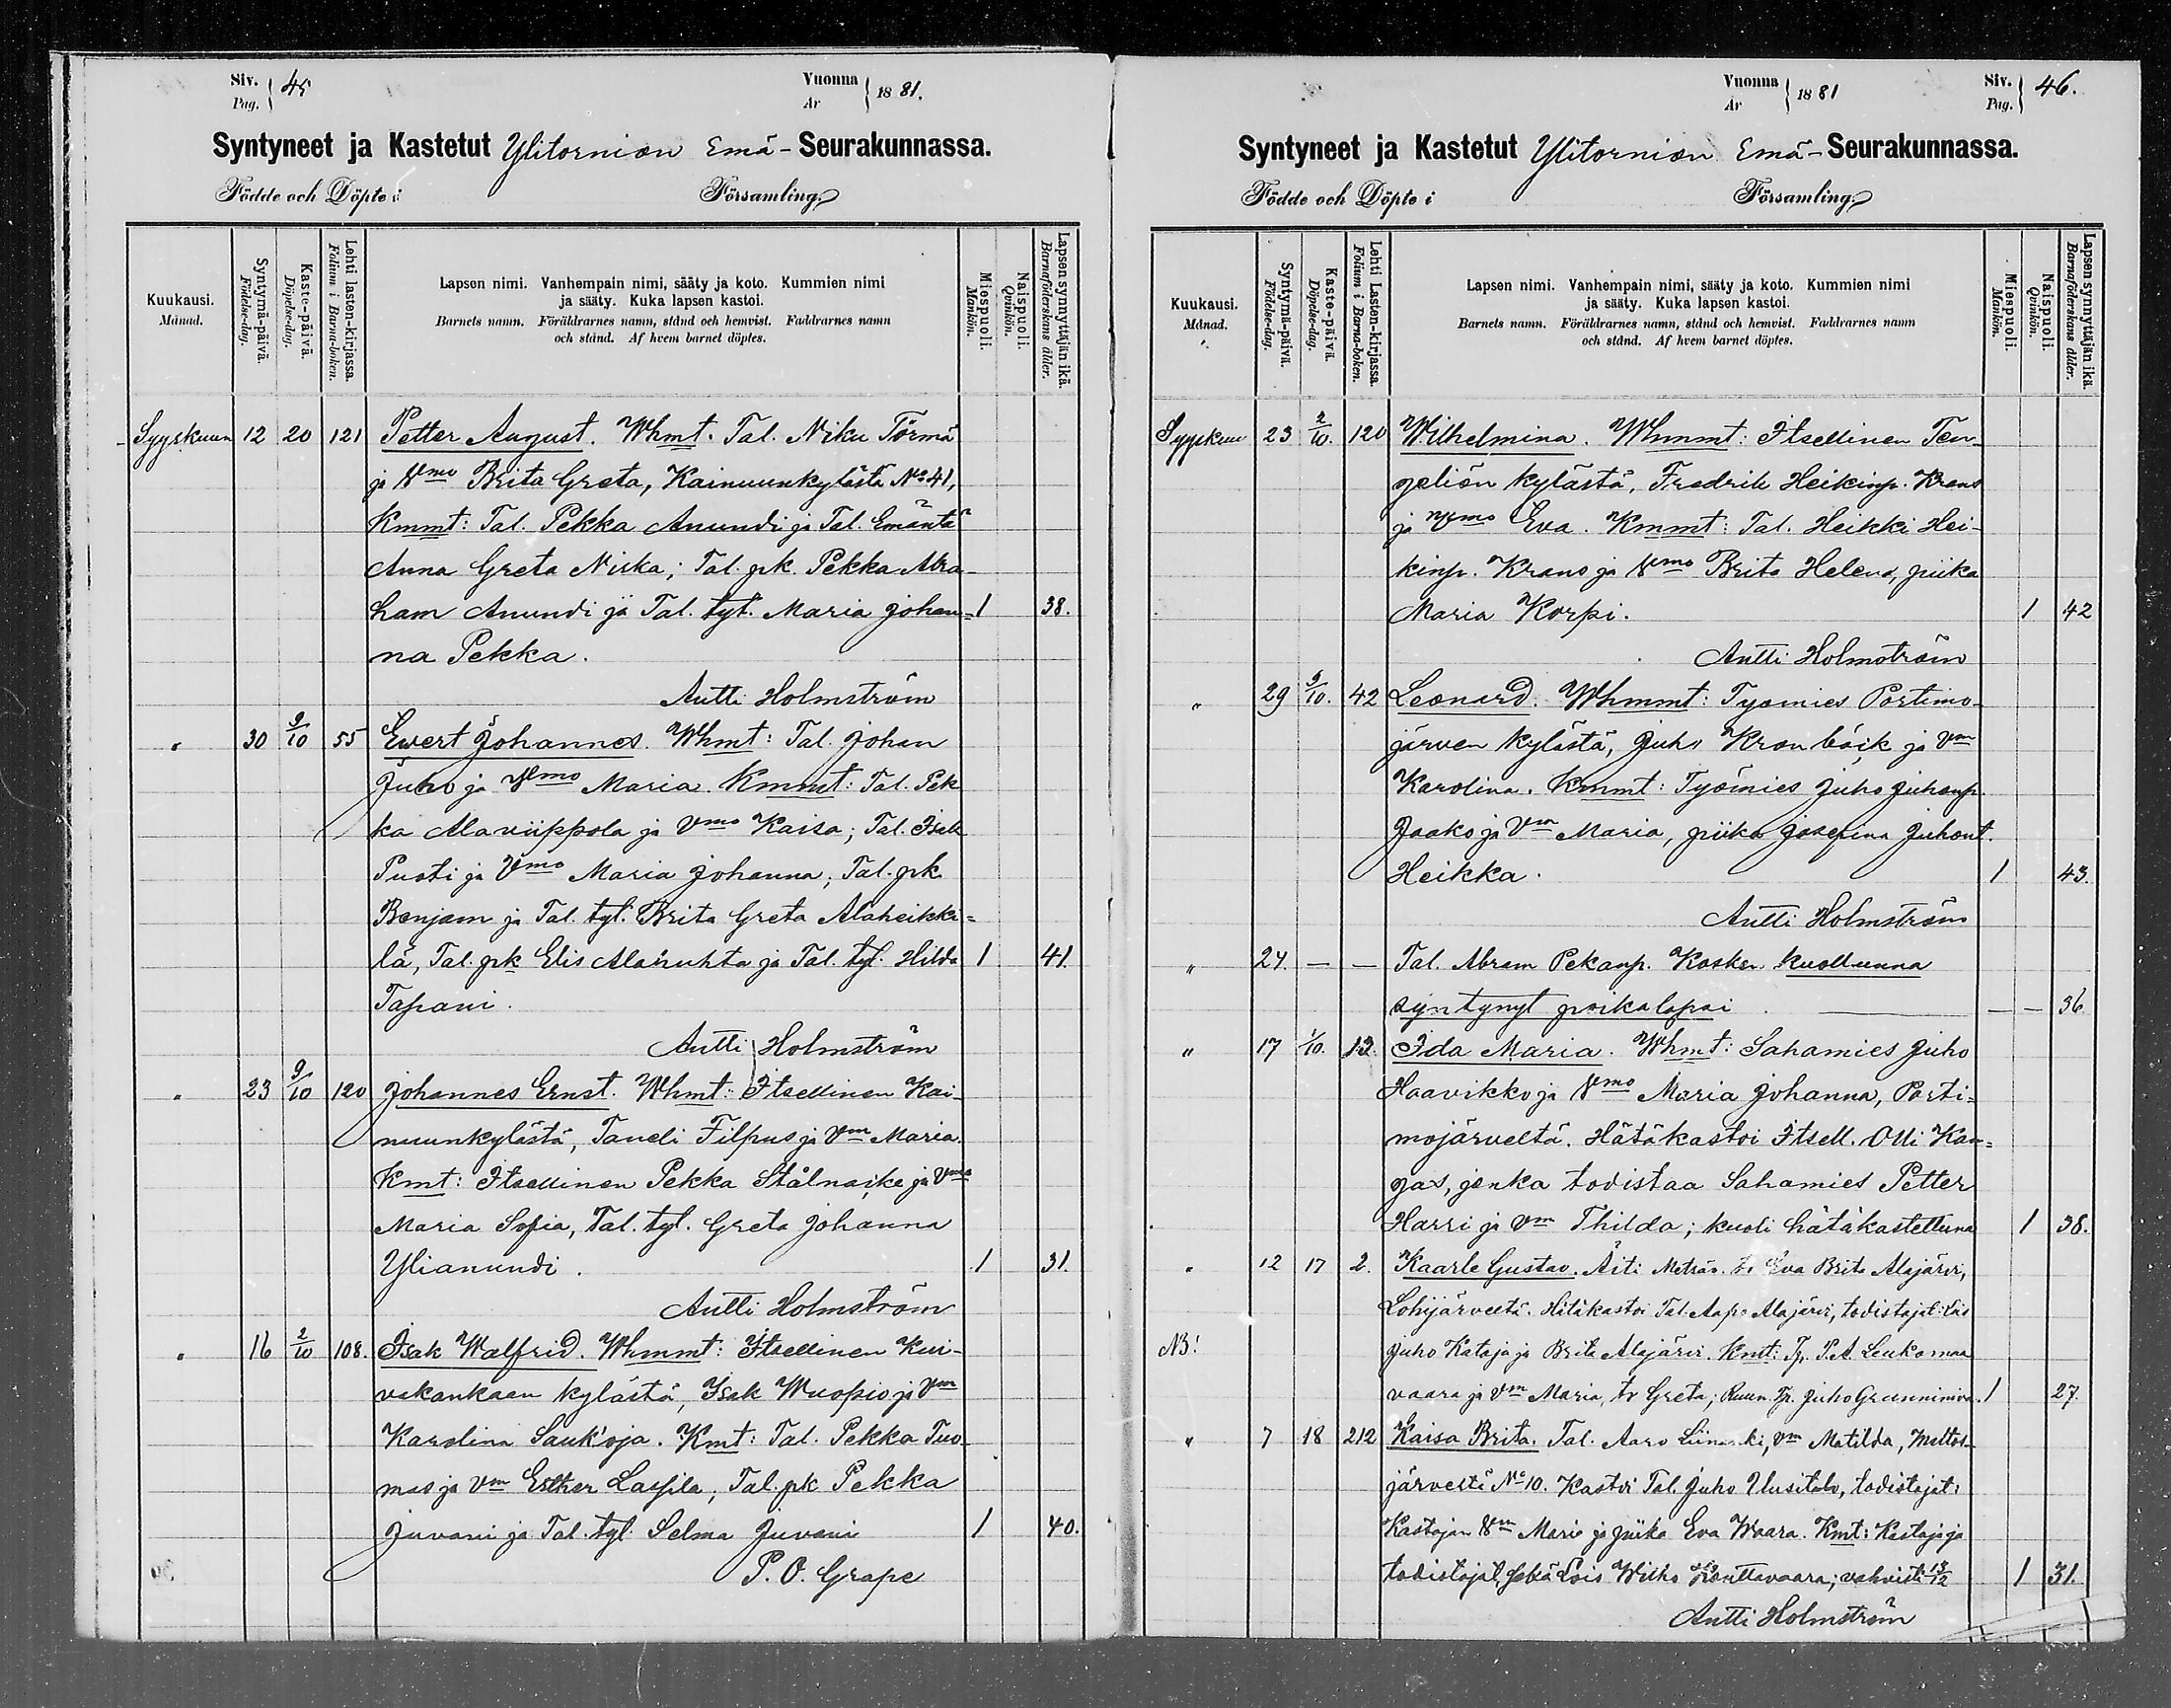 Siv. 45 Vuonna 1881.
Pag. År
Syntyneet ja Kastetut Ylitornion Emä-Seurakunnassa.
Födde och Döpte i Församling
Kuukausi.
Månad.
Syntymä-päivä.
Födelse-dag.
Kaste-päivä.
Döpelse-dag.
Lehti lasten-kirjassa.
Folium i Barna-boken.
Lapsen nimi. Vanhempain nimi, sääty ja koto. Kummien nimi
ja sääty. Kuka lapsen kastoi.
Barnets namn. Föräldrarnes namn, stånd och hemvist. Faddrarnes namn
och stånd. Af hvem barnet döptes.
Miespuoli.
Mankön.
Naispuoli.
Qvinkön.
Lapsen synnyttäjän ikä.
Barnaföderskans ålder.
Syyskuun 12 20 121 Petter August. Whmt. Tal. Niku Törmä
ja Vmo Brita Greta, Kainuunkylästä No 41,
Kmmt: Tal. Pekka Anundi ja Tal. Emäntä
Anna Greta Niska; Tal. pk. Pekka Abra-
ham Anundi ja Tal. tyt. Maria Johan- 1 38.
na Pekka.
Antti Holmström
" 30 9/10 55 Ewert Johannes. Whmt: Tal. Johan
Juho ja Vmo Maria. Kmmt: Tal. Pek
ka Alaviippola ja Vmo Kaisa; Tal. Isak
Puoti ja Vmo Maria Johanna; Tal. pk
Benjam ja Tal. tyt. Brita Greta Alaheikki=
lä, Tal. pk Elis Alaruhta ja Tal. tyt. Hilda 1 41.
Tapani.
Antti Holmström
" 23 9/10 120 Johannes Ernst. Whmt: Itsellinen Kai-
nuunkylästä, Taneli Filpus ja Vm Maria.
Kmt: Itsellinen Pekka Stålnacke ja Vmo
Maria Sofia, Tal. tyt. Greta Johanna
Ylianundi. 1 31.
Antti Holmström
" 16 2/10 108. Isak Walfrid. Whmmt: Itsellinen Kui-
vakankaan kylästä, Isak Wuopio ja Vm
Karolina Saukoja. Kmt: Tal. Pekka Tuo-
mas ja Vm Esther Lassila; Tal. pk Pekka
Juvani ja Tal. tyt. Selma Juvani 1 40.
P. O. Grape
Vuonna 1881 Siv. 46.
År Pag.
Syntyneet ja Kastetut Ylitornion Emä-Seurakunnassa.
Födde och Döpte i Församling
Kuukausi.
Månad.
Syntymä-päivä.
Födelse-dag.
Kaste-päivä.
Döpelse-dag.
Lehti Lasten-kirjassa.
Folium i Barna-boken.
Lapsen nimi. Vanhempain nimi, sääty ja koto. Kummien nimi
ja sääty. Kuka lapsen kastoi.
Barnets namn. Föräldrarnes namn, stånd och hemvist. Faddrarnes namn
och stånd. Af hvem barnet döptes.
Miespuoli.
Mankön.
Naispuoli.
Qvinkön.
Lapsen synnyttäjän ikä.
Barnaföderskans ålder.
Syyskuu 23 2/10. 120 Wilhelmina. Whmmt: Itsellinen Ten-
geliön kylästä, Fredrik Heikinp. Krans
ja Vmo Eva. Kmmt: Tal. Heikki Hei-
kinp. Krans ja Vmo Brita Helena, piika
Maria Korpi. 1 42
Antti Holmström
" 29 9/10. 42 Leonard. Whmmt: Työmies Portimo-
järven kylästä, Juho Kronbäck ja Vm
Karolina. Kmmt: Työmies Juho Juhonp.
Jaako ja Vm Maria, piika Josefina Juhont.
Heikka. 1 43.
Antti Holmström
" 24. — — Tal. Abram Pekanp. Kosken kuolluna
syntynyt poikalapsi — — 36
" 17 1/10. 13. Ida Maria. Whmt: Sahamies Juho
Haavikko ja Vmo Maria Johanna, Porti=
mojärveltä. Hätäkastoi Itsell. Olli Kan=
gas, jonka todistaa Sahamies Petter
Harri ja Vm Thilda; kuoli hätäkastettuna 1 38.
" 12 17 2. Kaarle Gustav. Äiti Eva Brita Alajärvi,
Lohijärveltä. Hätäkastoi Tal. Aapo Alajärvi, todistajat:
NB! Juho Kataja ja Brita Alajärvi. Kmt: P. A. Leukomaa
vaara ja Vm Maria, tr Greta; Juho 1 27.
" 7 18 212 Kaisa Brita. Tal. Aaro vm Matilda, Meltos-
järvestä No 10. Kastoi Tal. Juho Uusitalo, todistajat:
Kastajan Vm Maria ja piika Eva Waara. Kmt: Kastaja ja
todistajat, sekä Lois Wilho vahvisti 13/12 1 31.
Antti Holmström